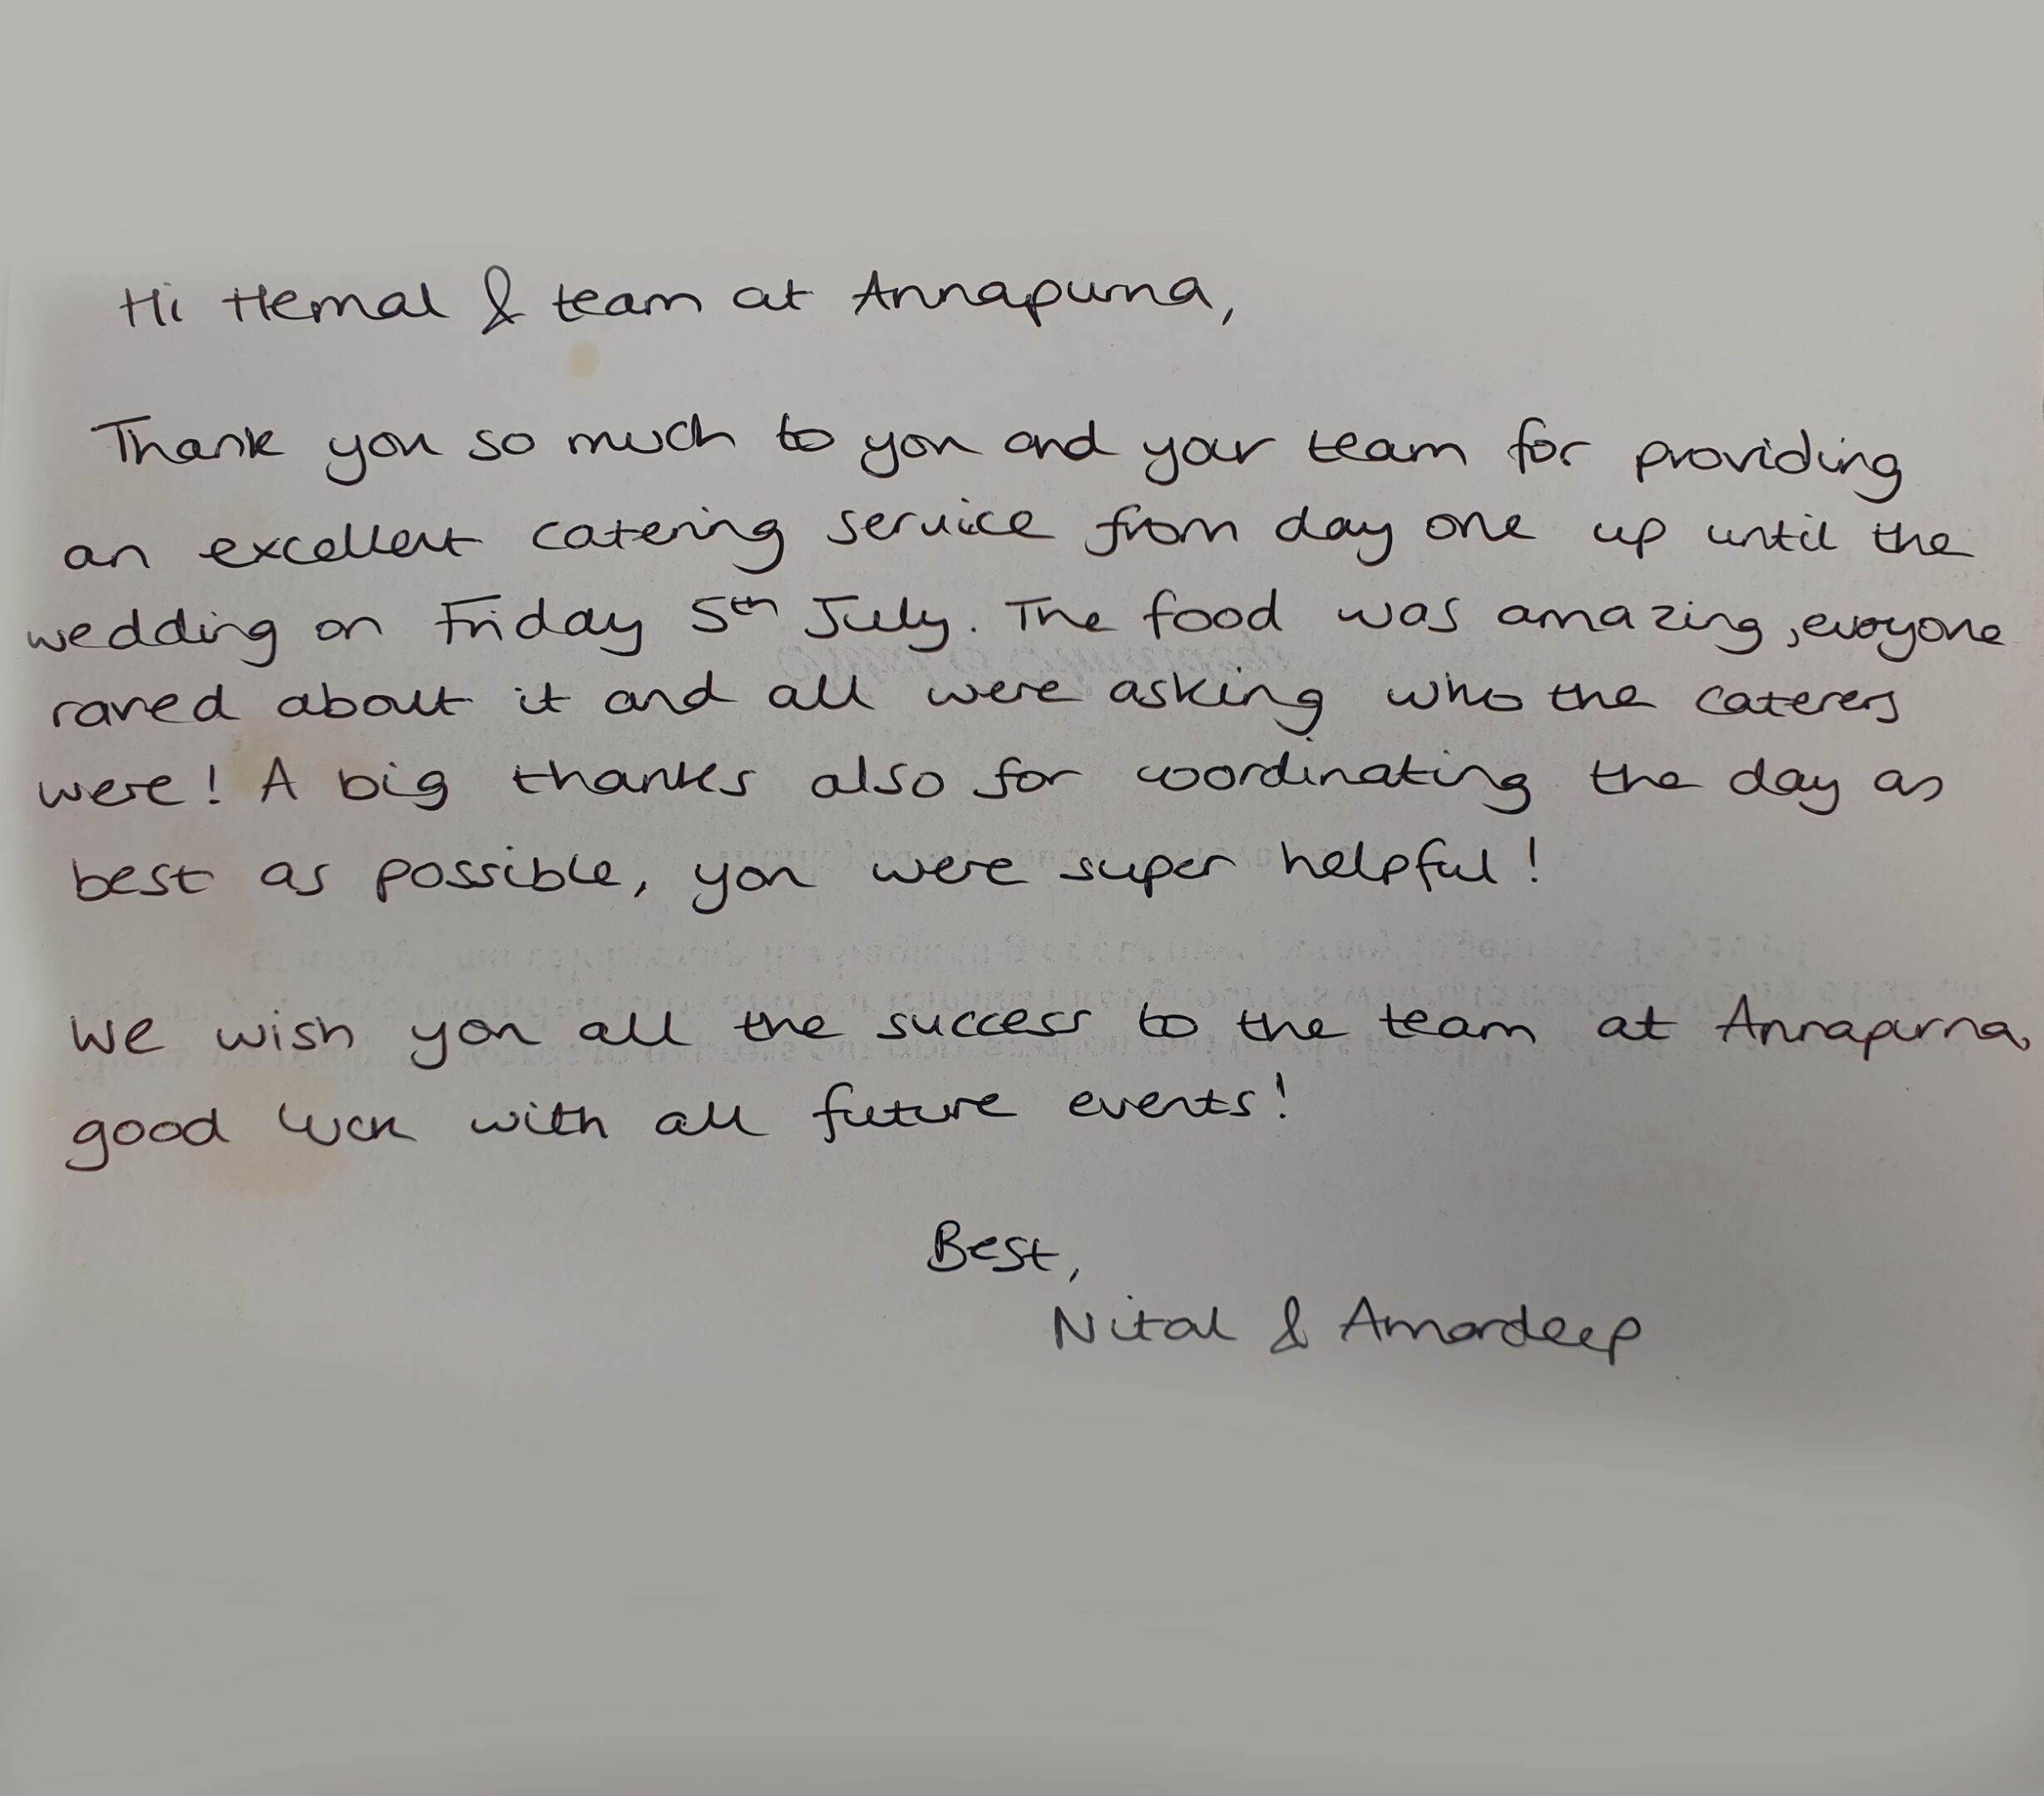 Hi Hemal & team at Annapurna,
Thank you so much to you and your team for providing
an excellent catering service from day one up until the
wedding on Friday 5th July. The food was amazing, everyone
raved about it and all were asking who the caterers
were! A big thanks also for coordinating the day as
best as possible, you were super helpful!
We wish you all the success to the team at Annapurna,
good luck with all future events!
Best,
Nital & Amardeep